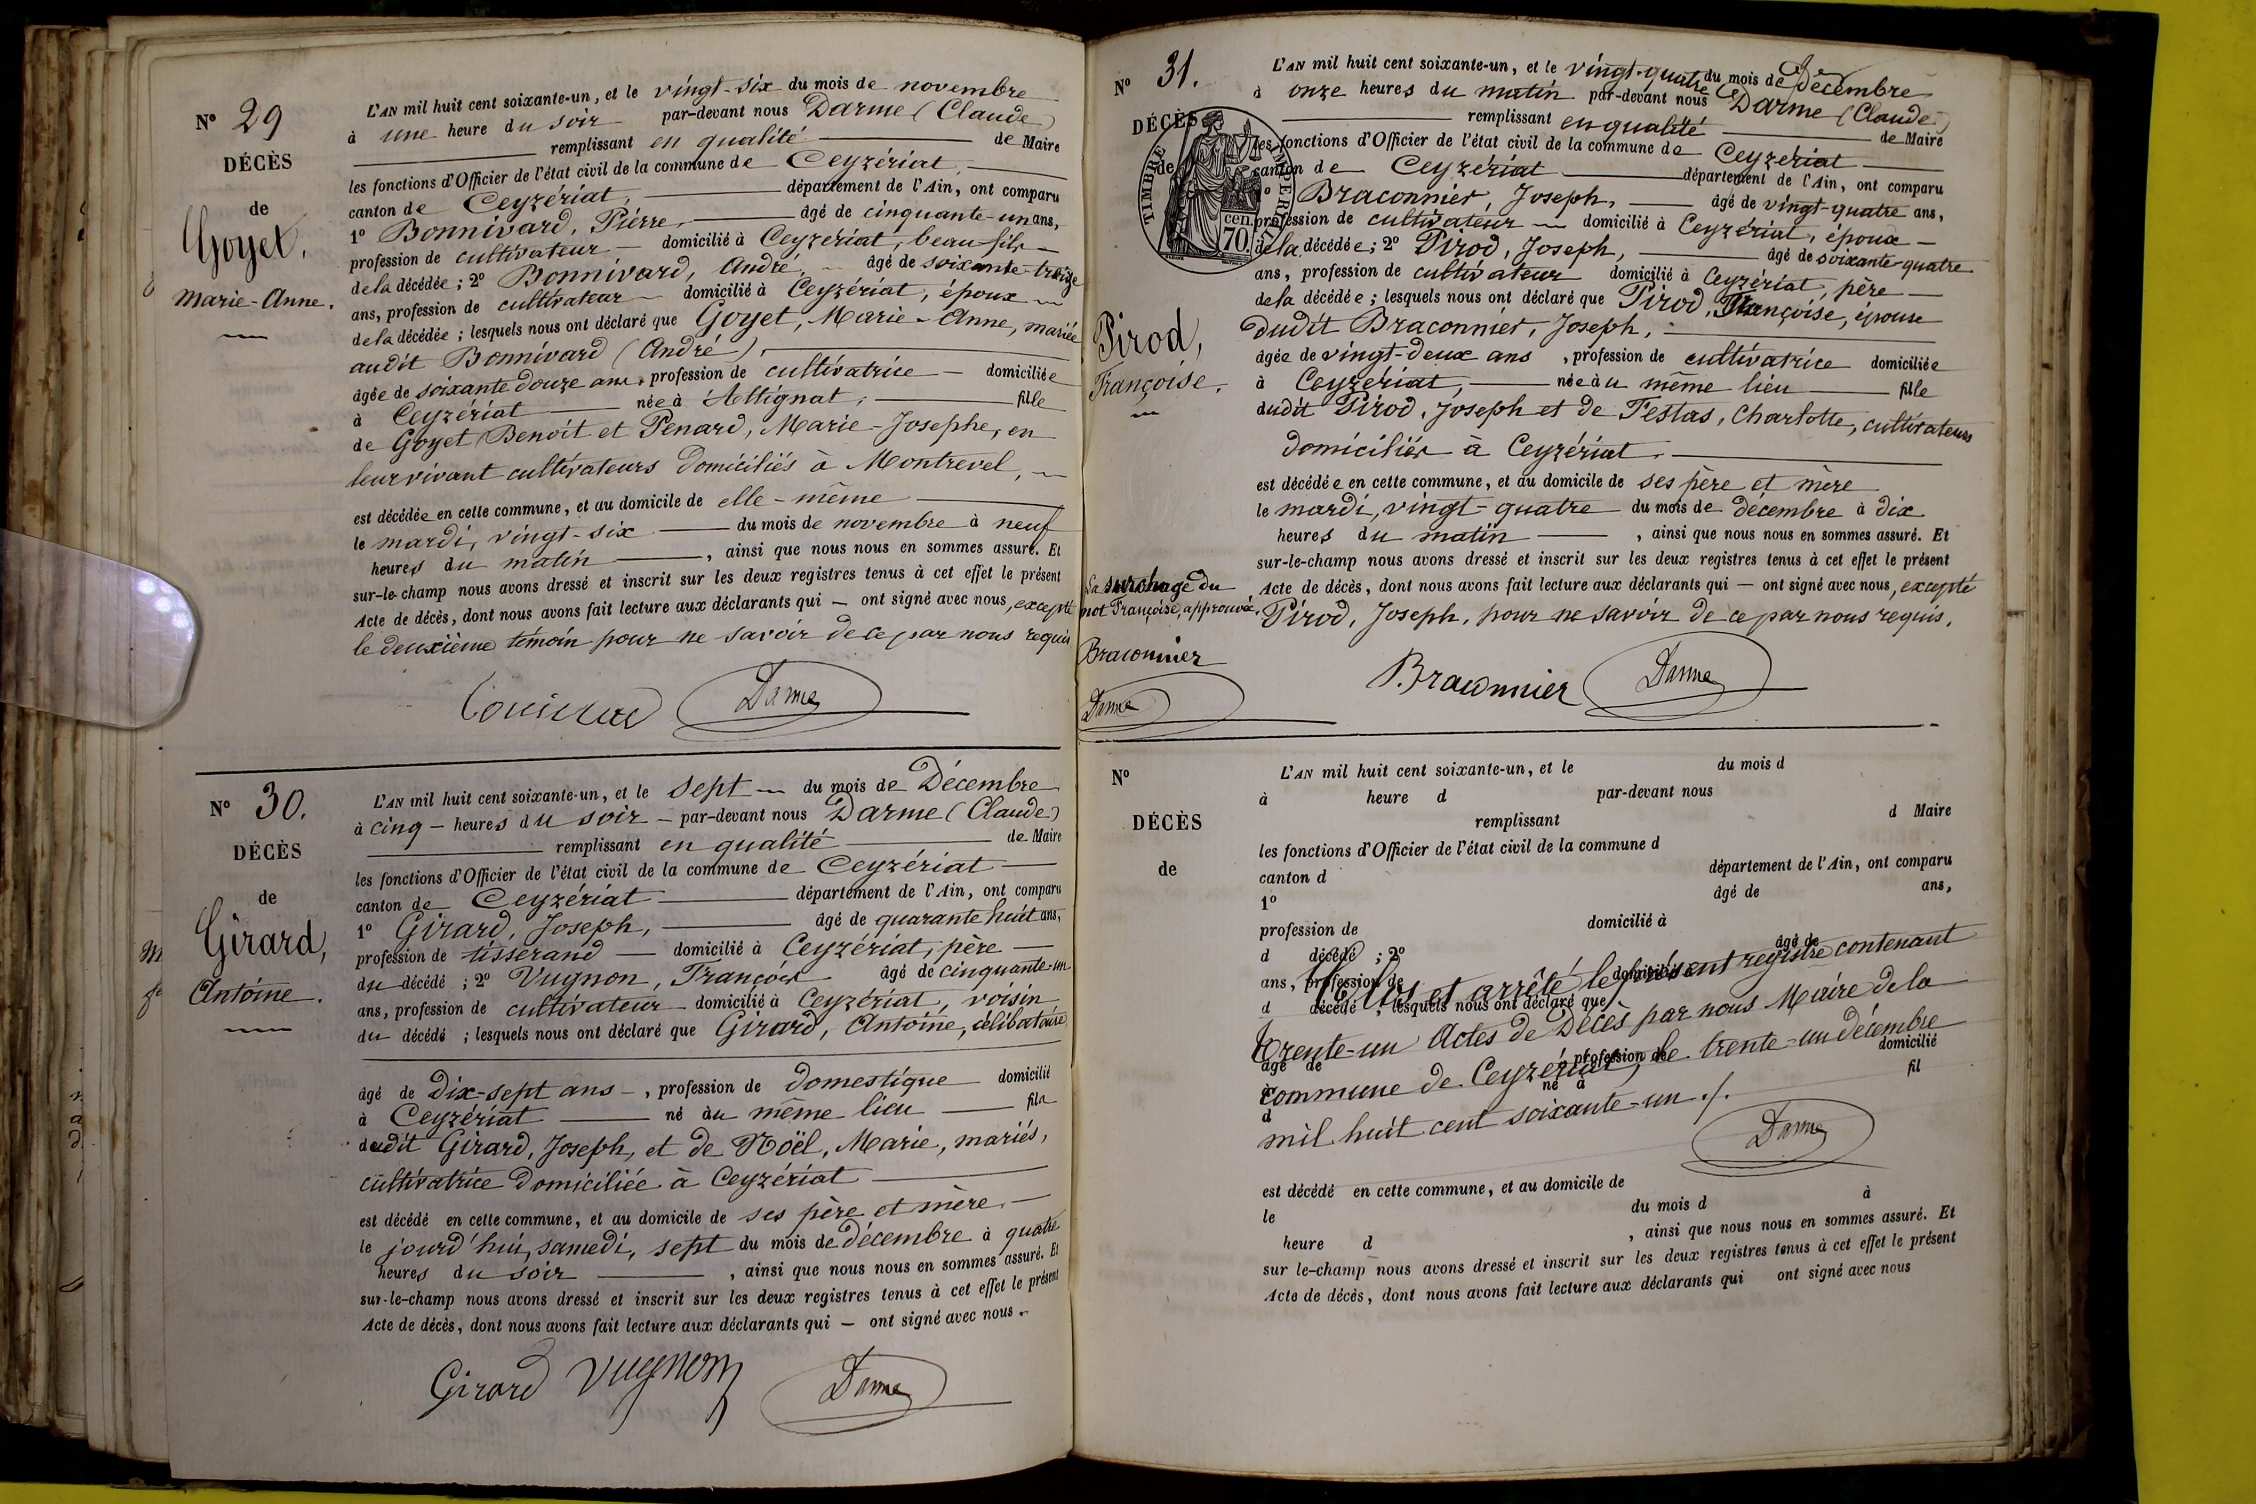 N° 29
DÉCÈS
de
Goyet,
Marie-Anne.
L'AN mil huit cent soixante-un, et le vingt-six du mois de novembre
à une heure du soir par-devant nous Darme (Claude)
remplissant en qualité de Maire
les fonctions d'Officier de l'état civil de la commune de Ceyzériat,
canton de Ceyzériat, département de l'Ain, ont comparu
1° Bonnivard, Pierre, âgé de cinquante-un ans,
profession de cultivateur domicilié à Ceyzériat, beau fils
de la décédée ; 2° Bonnivard, André, âgé de soixante-treize
ans, profession de cultivateur domicilié à Ceyzériat, époux
de la décédée ; lesquels nous ont déclaré que Goyet, Marie-Anne, mariée
audit Bonnivard (André),
âgée de soixante douze ans, profession de cultivatrice domiciliée
à Ceyzériat née à Attignat, fille
de Goyet, Benoit et Penard, Marie-Josephe, en
leur vivant cultivateurs domiciliés à Montrevel,
est décédée en cette commune, et au domicile de elle-même
le mardi, vingt-six du mois de novembre à neuf
heures du matin, ainsi que nous nous en sommes assuré. Et
sur-le-champ nous avons dressé et inscrit sur les deux registres tenus à cet effet le présent
Acte de décès, dont nous avons fait lecture aux déclarants qui — ont signé avec nous, excepté
le deuxième témoin pour ne savoir de ce par nous requis
Darme
N° 30.
DÉCÈS
de
Girard,
Antoine.
L'AN mil huit cent soixante-un, et le sept du mois de Décembre
à cinq heures du soir par-devant nous Darme (Claude)
remplissant en qualité de Maire
les fonctions d'Officier de l'état civil de la commune de Ceyzériat
canton de Ceyzériat département de l'Ain, ont comparu
1° Girard, Joseph, âgé de quarante huit ans,
profession de tisserand domicilié à Ceyzériat, père
du décédé ; 2° Vugnon, François âgé de cinquante-un
ans, profession de cultivateur domicilié à Ceyzériat, voisin
du décédé ; lesquels nous ont déclaré que Girard, Antoine, célibataire
âgé de Dix-sept ans, profession de domestique domicilié
à Ceyzériat né au même lieu fils
dudit Girard, Joseph, et de Noël, Marie, mariés,
cultivatrice domiciliée à Ceyzériat
est décédé en cette commune, et au domicile de ses père et mère
le jourd'hui, samedi, sept du mois de décembre à quatre
heures du soir, ainsi que nous nous en sommes assuré. Et
sur-le-champ nous avons dressé et inscrit sur les deux registres tenus à cet effet le présent
Acte de décès, dont nous avons fait lecture aux déclarants qui — ont signé avec nous.
Girard Vugnon Darme
N° 31.
DÉCÈS
de
TIMBRE IMPÉRIAL
70 cen.
Pirod,
Françoise.
L'AN mil huit cent soixante-un, et le vingt-quatre du mois de Décembre
à onze heures du matin par-devant nous Darme (Claude)
remplissant en qualité de Maire
les fonctions d'Officier de l'état civil de la commune de Ceyzériat
canton de Ceyzériat département de l'Ain, ont comparu
1° Braconnier, Joseph, âgé de vingt-quatre ans,
profession de cultivateur domicilié à Ceyzériat, époux
de la décédée ; 2° Pirod, Joseph, âgé de soixante-quatre
ans, profession de cultivateur domicilié à Ceyzériat, père
de la décédée ; lesquels nous ont déclaré que Pirod, Françoise, épouse
dudit Braconnier, Joseph,
âgée de vingt-deux ans, profession de cultivatrice domiciliée
à Ceyzériat, née au même lieu fille
dudit Pirod, Joseph et de Festas, Charlotte, cultivateurs
domiciliés à Ceyzériat.
est décédée en cette commune, et au domicile de ses père et mère
le mardi, vingt-quatre du mois de décembre à dix
heures du matin, ainsi que nous nous en sommes assuré. Et
sur-le-champ nous avons dressé et inscrit sur les deux registres tenus à cet effet le présent
Acte de décès, dont nous avons fait lecture aux déclarants qui — ont signé avec nous, excepté
Pirod, Joseph, pour ne savoir de ce par nous requis.
La surchage du
mot Françoise, approuvée.
Braconnier
Darme
Braconnier Darme
N°
DÉCÈS
de
L'AN mil huit cent soixante-un, et le du mois d
à heure d par-devant nous
remplissant d Maire
les fonctions d'Officier de l'état civil de la commune d
canton d département de l'Ain, ont comparu
1° âgé de ans,
profession de domicilié à
d décédé ; 2° âgé de
ans, profession de domicilié à
d décédé ; lesquels nous ont déclaré que
âgé de profession de domicilié
à né à fil
d
Clos et arrêté le présent registre contenant
trente-un Actes de Décès par nous Maire de la
commune de Ceyzériat, le trente-un décembre
mil huit cent soixante-un ./.
Darme
est décédé en cette commune, et au domicile de
le du mois d à
heure d , ainsi que nous nous en sommes assuré. Et
sur le-champ nous avons dressé et inscrit sur les deux registres tenus à cet effet le présent
Acte de décès, dont nous avons fait lecture aux déclarants qui ont signé avec nous